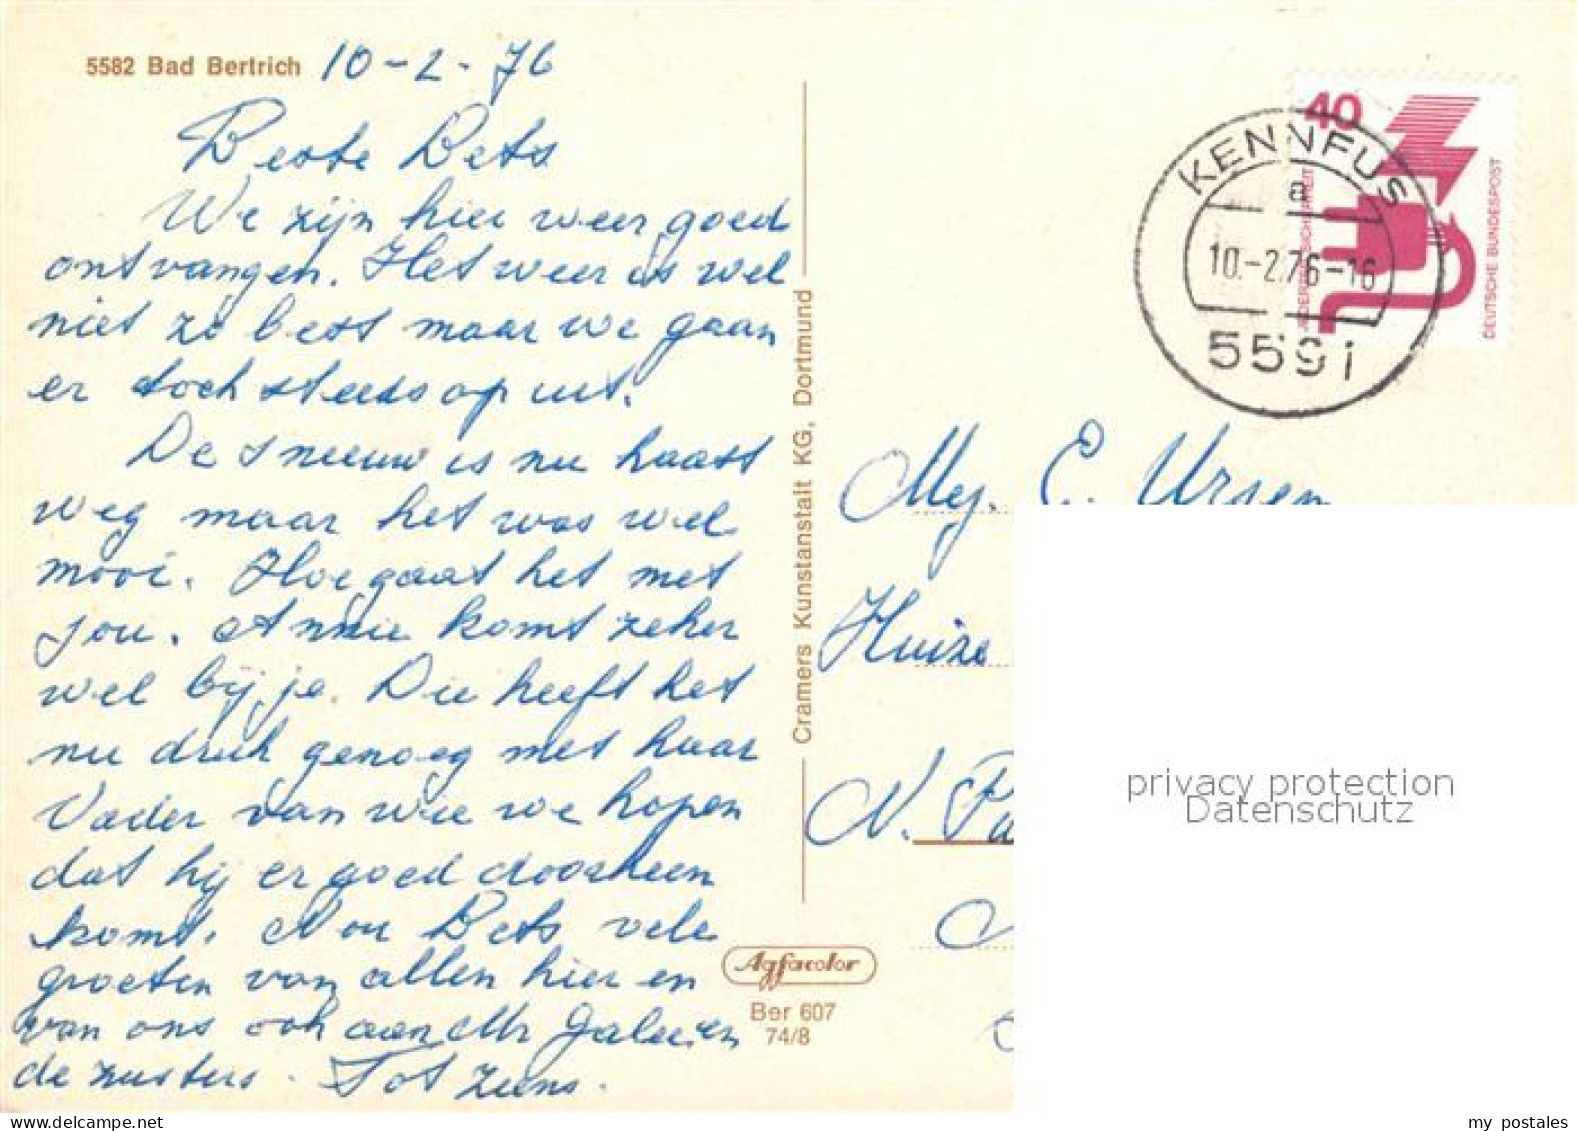 5582 Bad Bertrich 10-2-76
Beste Bets
We zijn hier weer goed
ontvangen. Het weer is wel
niet zo best maar we gaan
er toch steeds op uit.
De sneeuw is nu haast
weg maar het was wel
mooi. Hoe gaat het met
jou. Annie komt zeker
wel bij je. Die heeft het
nu druk genoeg met haar
Vader van wie we hopen
dat hij er goed doorheen
komt. Nou Bets vele
groeten van allen hier en
van ons ook aan Mr en
de zusters. Tot ziens.
Cramers Kunstanstalt KG, Dortmund
Agfacolor
Ber 607
74/8
40
DEUTSCHE BUNDESPOST
KENNFUS
a
10.-2.76-16
5591
Mej. E. Ursem
Huize
N.
privacy protection
Datenschutz
my postales